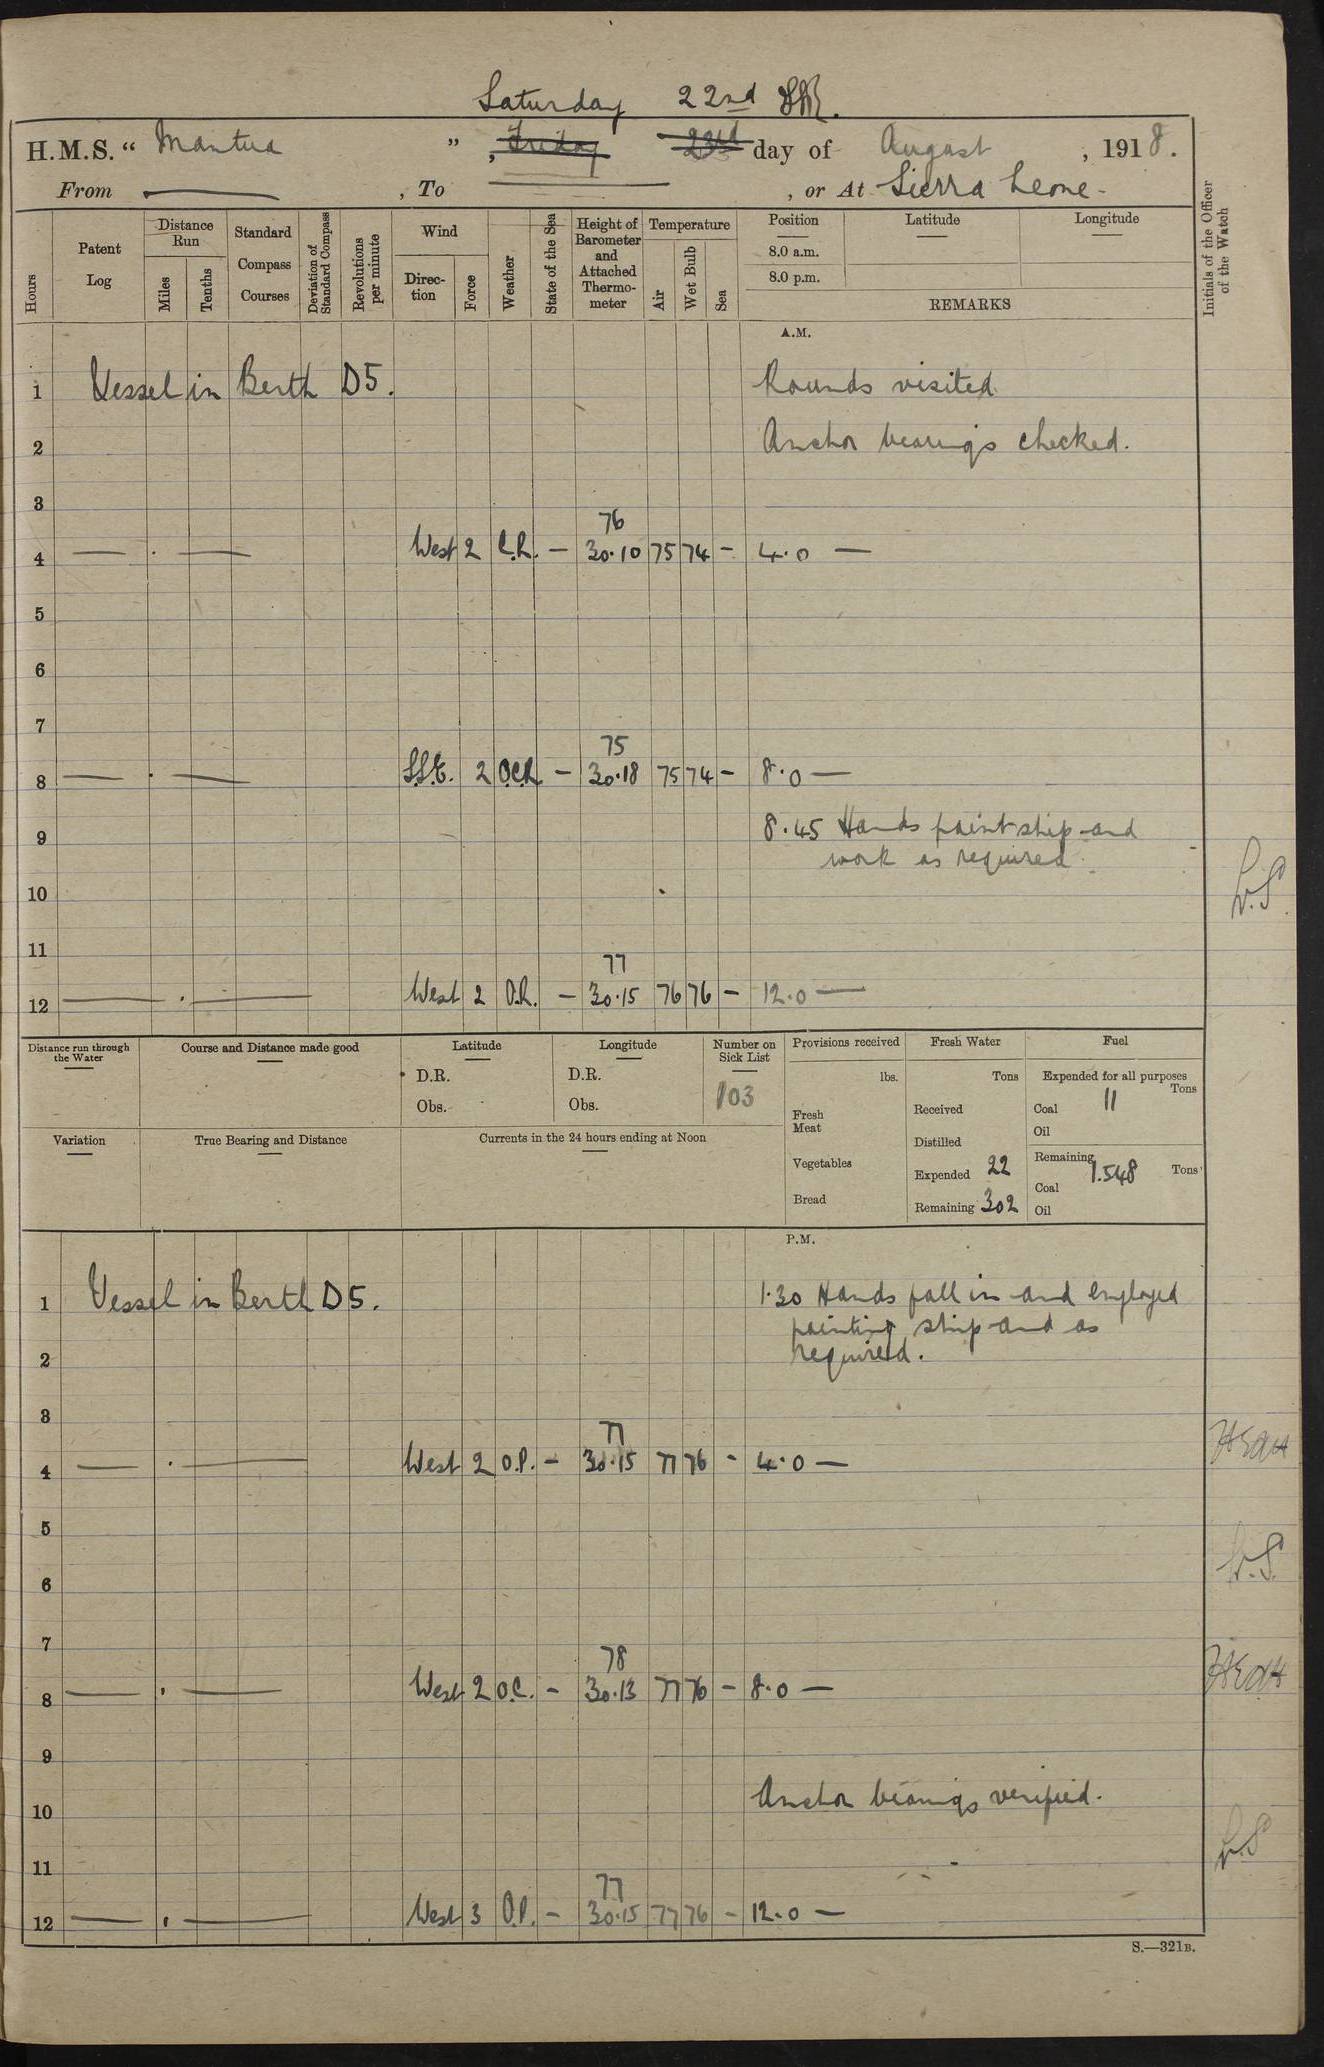 Saturday 22nd
H.M.S. “ Mantua ” , Friday 23rd day of August , 1918.
From , To , or At Sierra Leone.
Hours
Patent Log
Distance Run
Miles
Tenths
Standard Compass Courses
Deviation of Standard Compass
Revolutions per minute
Wind
Direction
Force
Weather
State of the Sea
Height of Barometer and Attached Thermometer
Temperature
Air
Wet Bulb
Sea
Position Latitude Longitude
8.0 a.m.
8.0 p.m.
REMARKS
Initials of the Officer of the Watch
A.M.
1 Vessel in Berth D5. Rounds visited
2 Anchor bearings checked.
3
76
4 — . — West 2 C.R. — 30.10 75 74 — 4.0 —
5
6
7
75
8 — . — S.S.E. 2 O.C.R. — 30.18 75 74 — 8.0 —
9 8.45 Hands paint ship and
work as required
10
11
77
12 — . — West 2 O.R. — 30.15 76 76 — 12.0 —
Distance run through the Water
Course and Distance made good
Latitude
D.R.
Obs.
Longitude
D.R.
Obs.
Number on Sick List
103
Provisions received
lbs.
Fresh Meat
Vegetables
Bread
Fresh Water
Tons
Received
Distilled
Expended 22
Remaining 302
Fuel
Expended for all purposes
Tons
Coal 11
Oil
Remaining Tons
Coal 1.548
Oil
Variation
True Bearing and Distance
Currents in the 24 hours ending at Noon
P.M.
1 Vessel in Berth D5. 1.30 Hands fall in and employed
painting ship and as
2 required.
3
77
4 — . — West 2 O.P. — 30.15 77 76 — 4.0 —
5
6
7
78
8 — . — West 2 O.C. — 30.13 77 76 — 8.0 —
9
10 Anchor bearings verified.
11
77
12 — . — West 3 O.P. — 30.15 77 76 — 12.0 —
S.—321B.